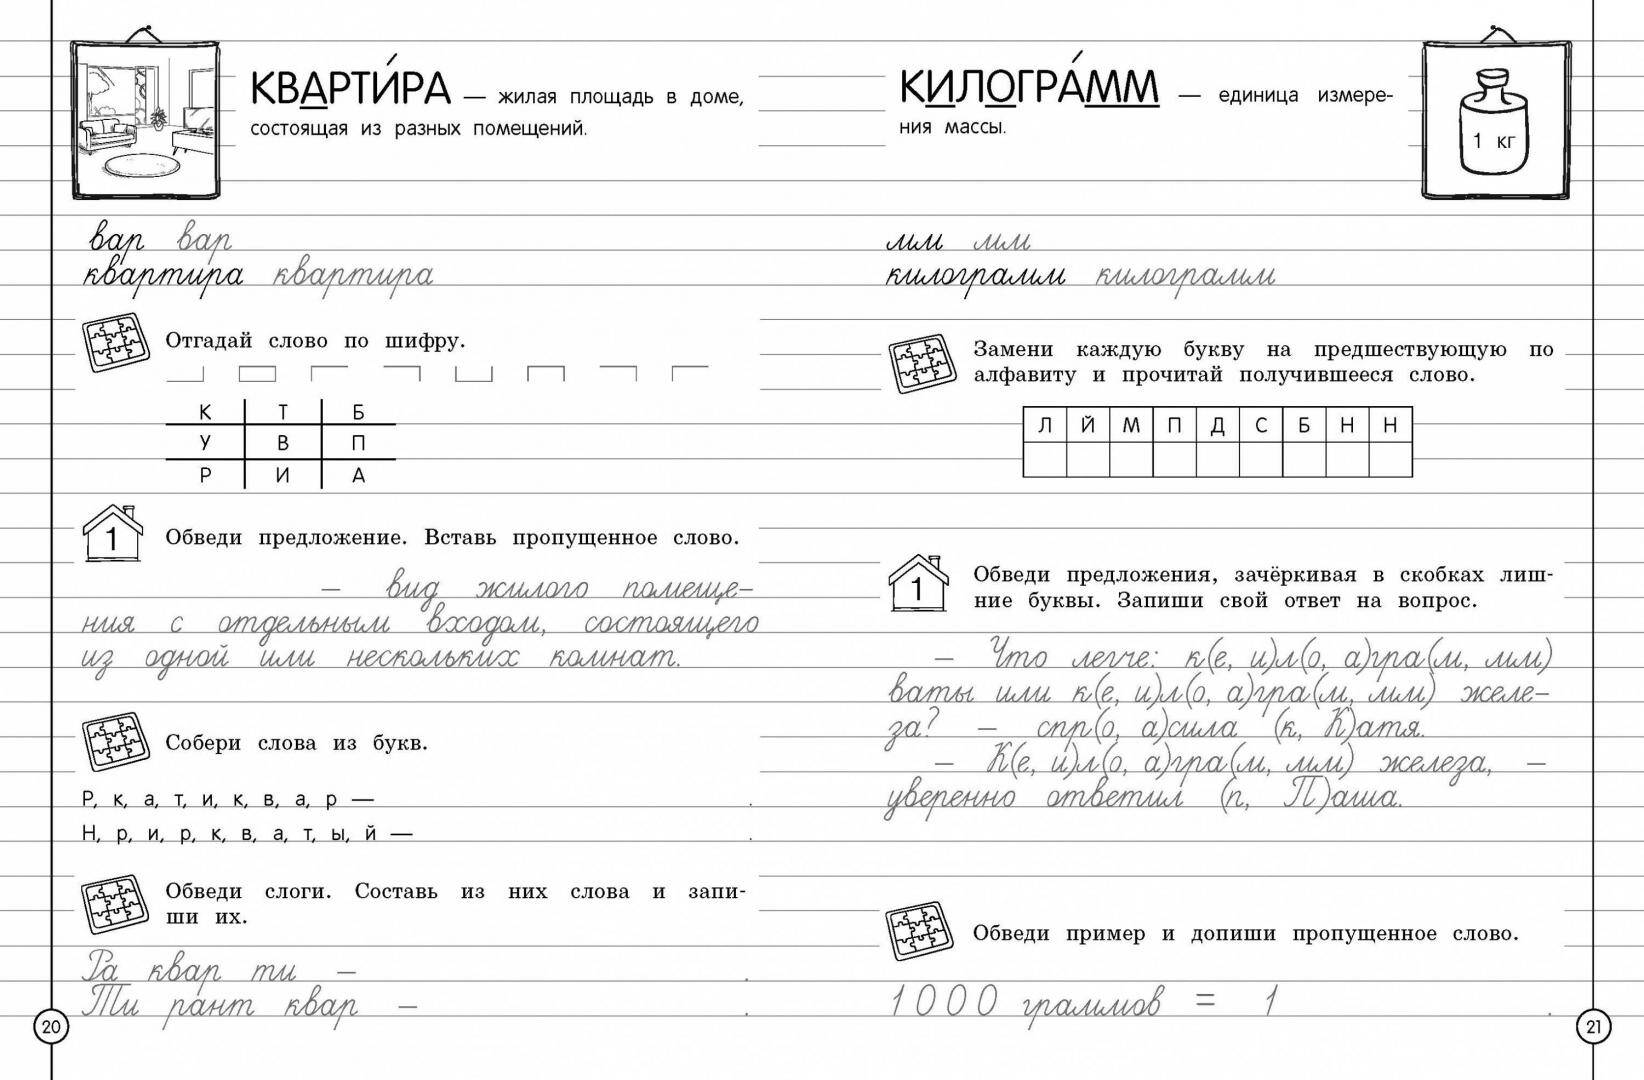 КВАРТИ́РА — жилая площадь в доме,
состоящая из разных помещений.
вар вар
квартира квартира
Отгадай слово по шифру.
К Т Б
У В П
Р И А
1 Обведи предложение. Вставь пропущенное слово.
– вид жилого помеще-
ния с отдельным входом, состоящего
из одной или нескольких комнат.
Собери слова из букв.
Р, к, а, т, и, к, в, а, р — .
Н, р, и, р, к, в, а, т, ы, й — .
Обведи слоги. Составь из них слова и запи-
ши их.
Ра квар ти – .
Ти рант квар – .
20
КИЛОГРА́ММ — единица измере-
ния массы.
1 кг
мм мм
килограмм килограмм
Замени каждую букву на предшествующую по
алфавиту и прочитай получившееся слово.
Л Й М П Д С Б Н Н
1 Обведи предложения, зачёркивая в скобках лиш-
ние буквы. Запиши свой ответ на вопрос.
– Что легче: к(е, и)л(о, а)гра(м, мм)
ваты или к(е, и)л(о, а)гра(м, мм) желе-
за? – спр(о, а)сила (к, К)атя.
– К(е, и)л(о, а)гра(м, мм) железа, –
уверенно ответил (п, П)аша.
Обведи пример и допиши пропущенное слово.
1000 граммов = 1 .
21